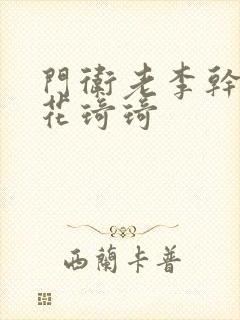 門衛老李幹
花琦琦
西蘭卡普